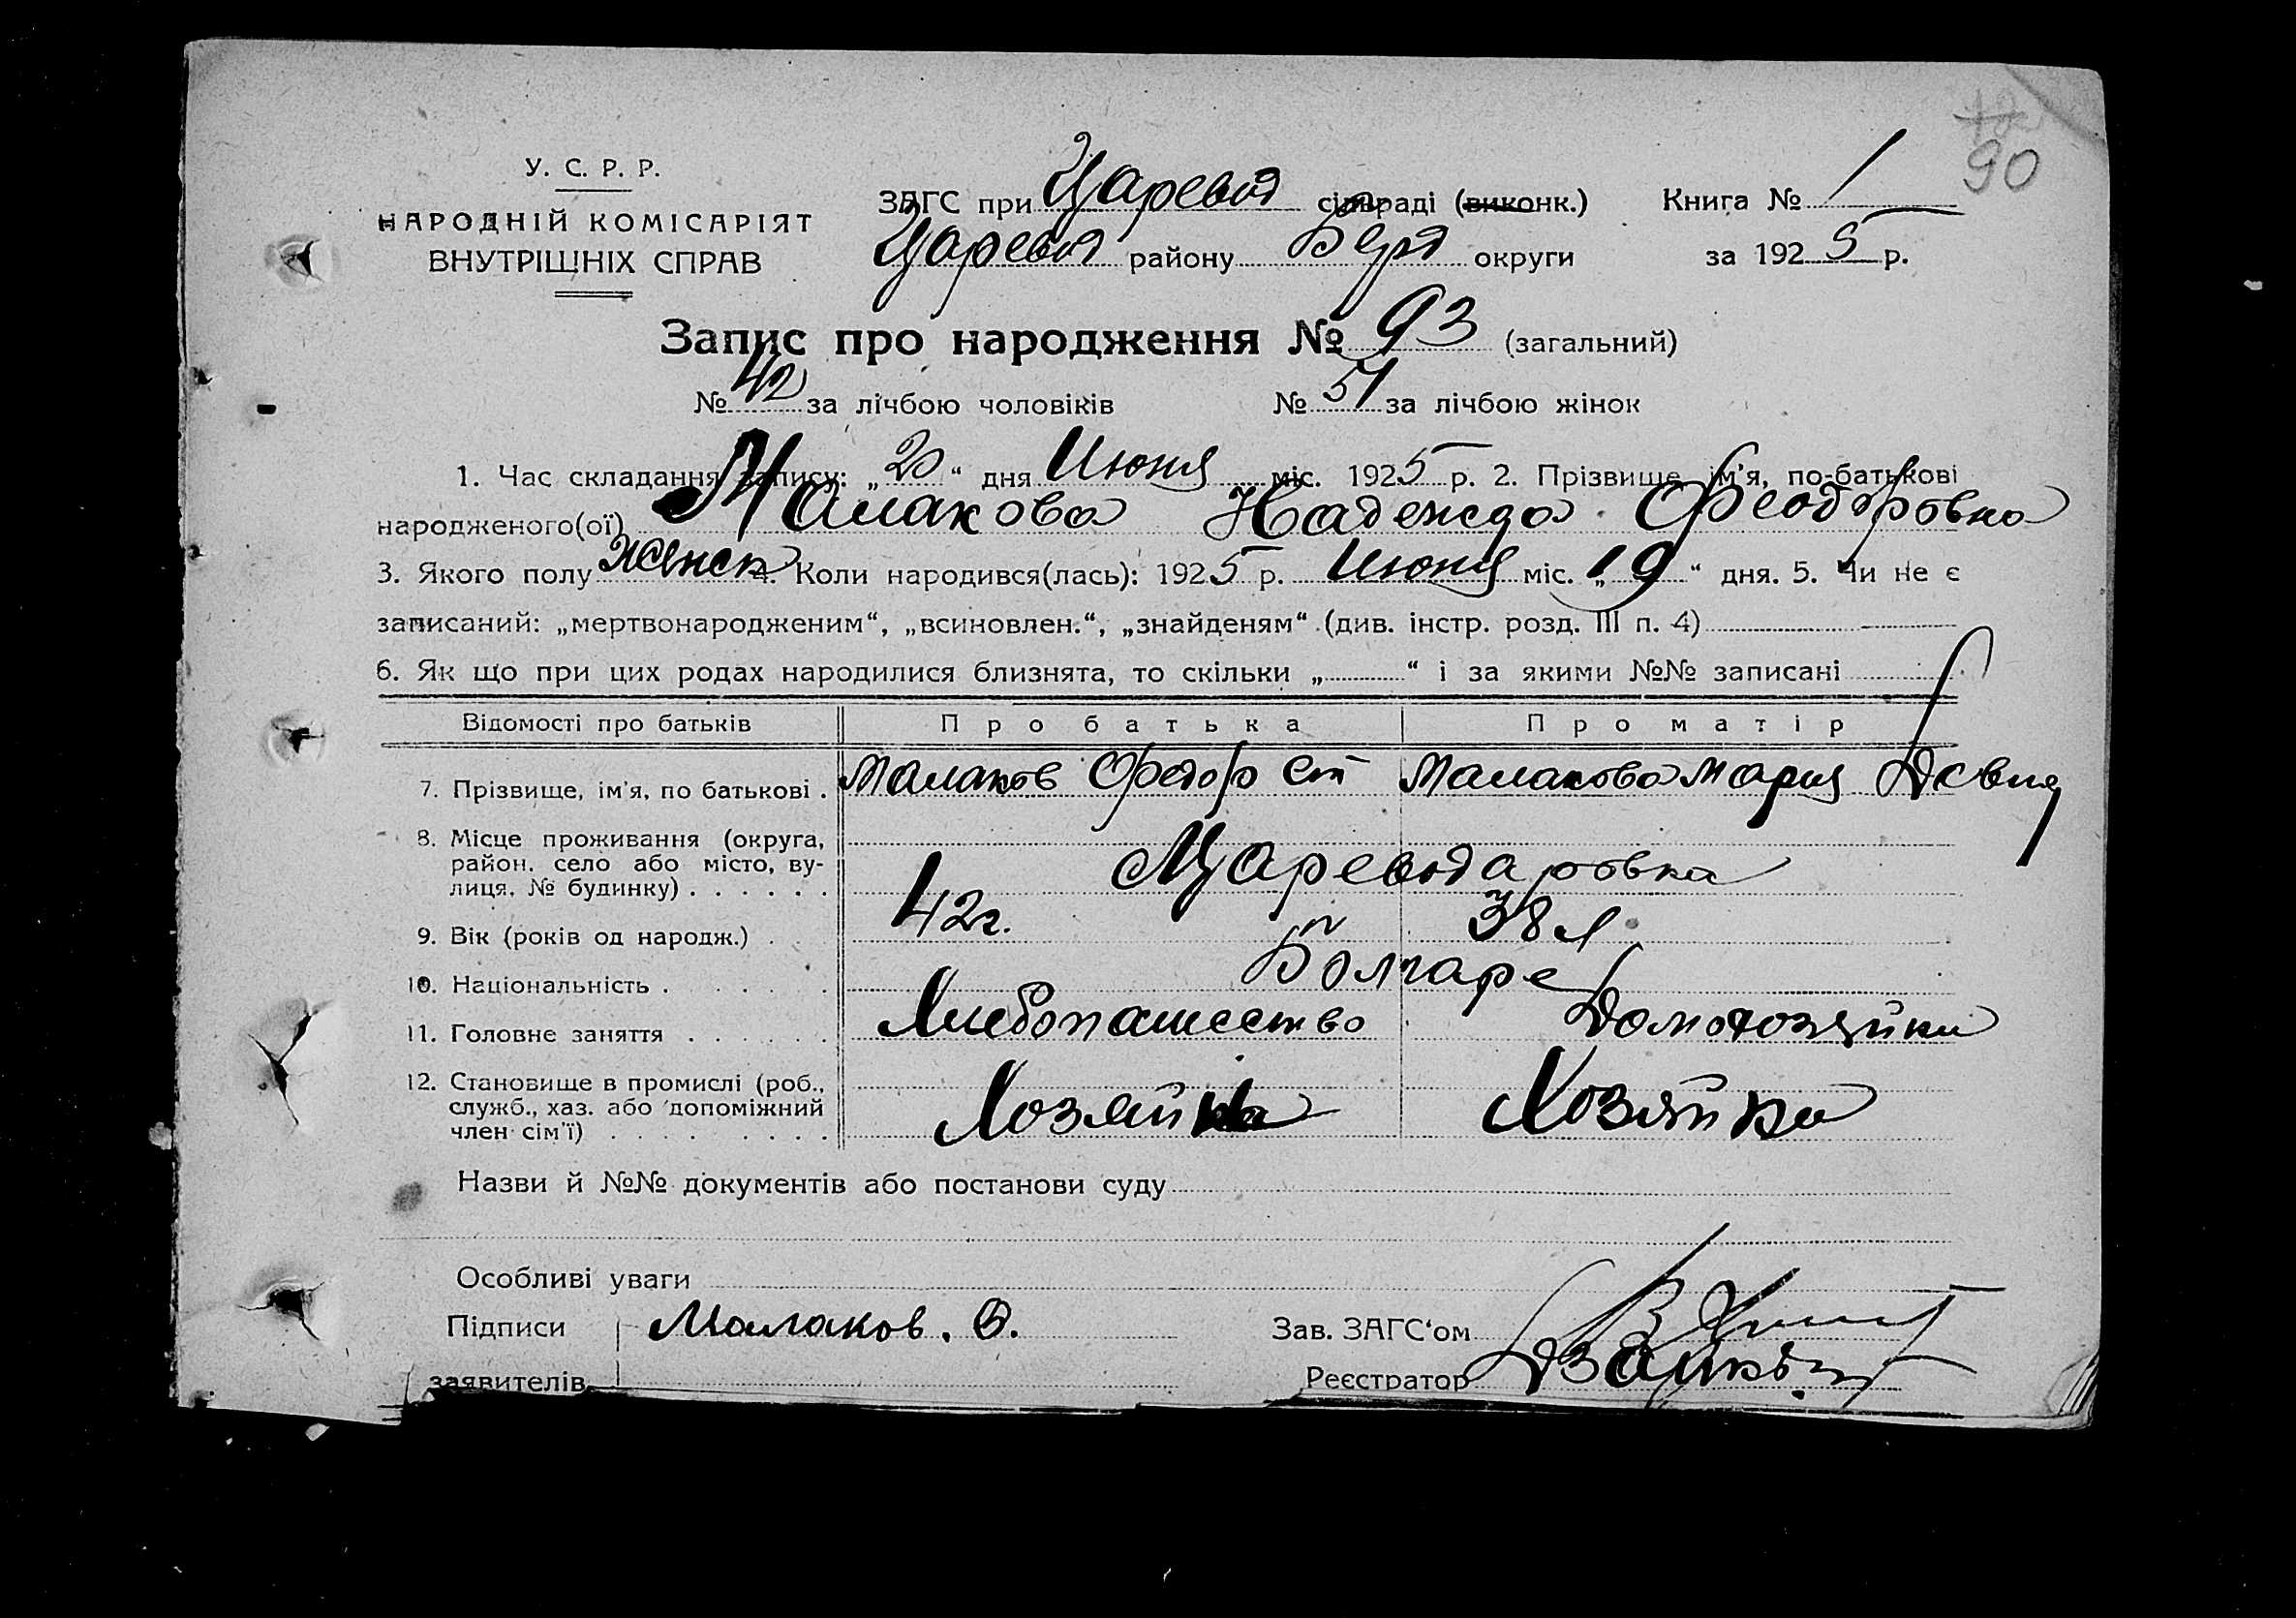 90
У. С. Р. Р.
НАРОДНІЙ КОМІСАРІЯТ
ВНУТРІШНІХ СПРАВ
ЗАГС при Царевод сільраді (виконк.) Книга № 1
Царевод району округи за 1925 р.
Запис про народження № 93 (загальний)
№ 42 за лічбою чоловіків № 51 за лічбою жінок
1. Час складання запису: „20“ дня Июня міс. 1925 р. 2. Прізвище, ім'я, по-батькові
народженого(ої) Малакова Надежда Феодоровна
3. Якого полу Женск 4. Коли народився(лась): 1925 р. Июня міс. „19“ дня. 5. Чи не є
записаний: „мертвонародженим“, „всиновлен.“, „знайденям“ (див. інстр. розд. III п. 4)
6. Як що при цих родах народилися близнята, то скільки „ “ і за якими №№ записані
Відомості про батьків Про батька Про матір
7. Прізвище, ім'я, по батькові . Малаков Федор Ст Малакова Мария
8. Місце проживання (округа,
район, село або місто, ву-
лиця, № будинку) . . . . . . Цареводаровка
9. Вік (років од народж.) . 42г. 38 л
10. Національність . . . . . Болгаре
11. Головне заняття . . . . . . Хлебопашество Домохозяйка
12. Становище в промислі (роб.,
служб., хаз. або допоміжний
член сім'ї) . . . . . . . . . Хозяин Хозяйка
Назви й №№ документів або постанови суду
Особливі уваги
Підписи Малаков. Ѳ. Зав. ЗАГС‘ом
заявителів Реєстратор